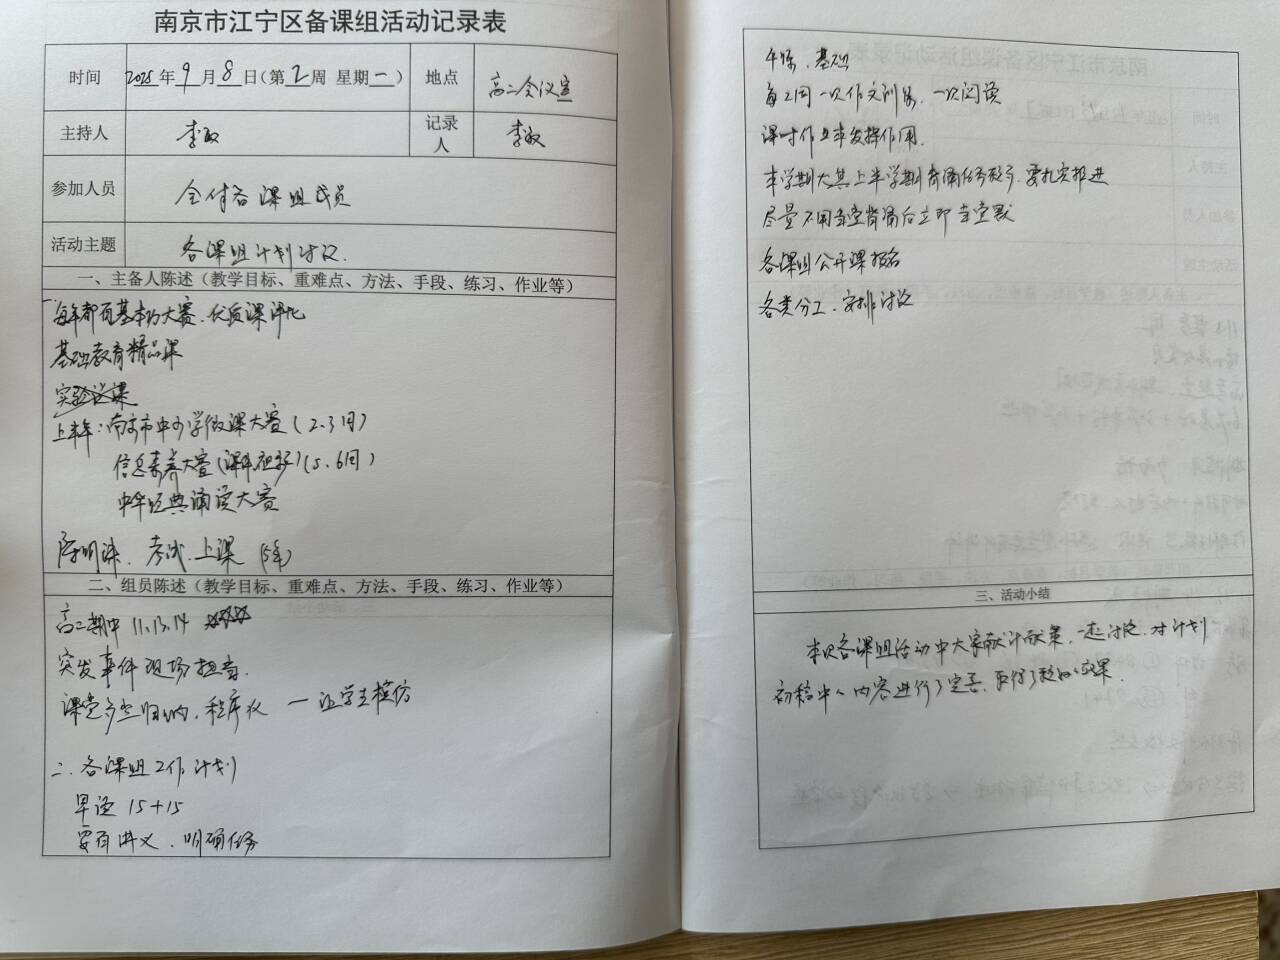 南京市江宁区备课组活动记录表
时间 2025年9月8日(第2周 星期一) 地点 高二会议室
主持人 李敏 记录人 李敏
参加人员 全体备课组成员
活动主题 备课组计划讨论.
一、主备人陈述（教学目标、重难点、方法、手段、练习、作业等）
每年都有基本功大赛、优质课评比
基础教育精品课
上半年：南京市中小学微课大赛(2.3月)
信息素养大赛(课件)(5.6月)
中华经典诵读大赛
考试、上课 (5年)
二、组员陈述（教学目标、重难点、方法、手段、练习、作业等）
高二期中 11.13.14
突发事件现场
课堂多些归纳、程序化 — 让学生模仿
二、备课组工作计划
早读 15+15
要有讲义、明确任务
午练、基础
每2周一次作文训练、一次阅读
课时作业本发挥作用.
本学期尤其上半学期背诵任务较多、要扎实推进
尽量不用当堂背诵后立即当堂默
备课组公开课报名
各类分工、安排讨论
三、活动小结
本次备课组活动中大家献计献策、一起讨论、对计划
初稿中的内容进行了完善、取得了较好的效果.